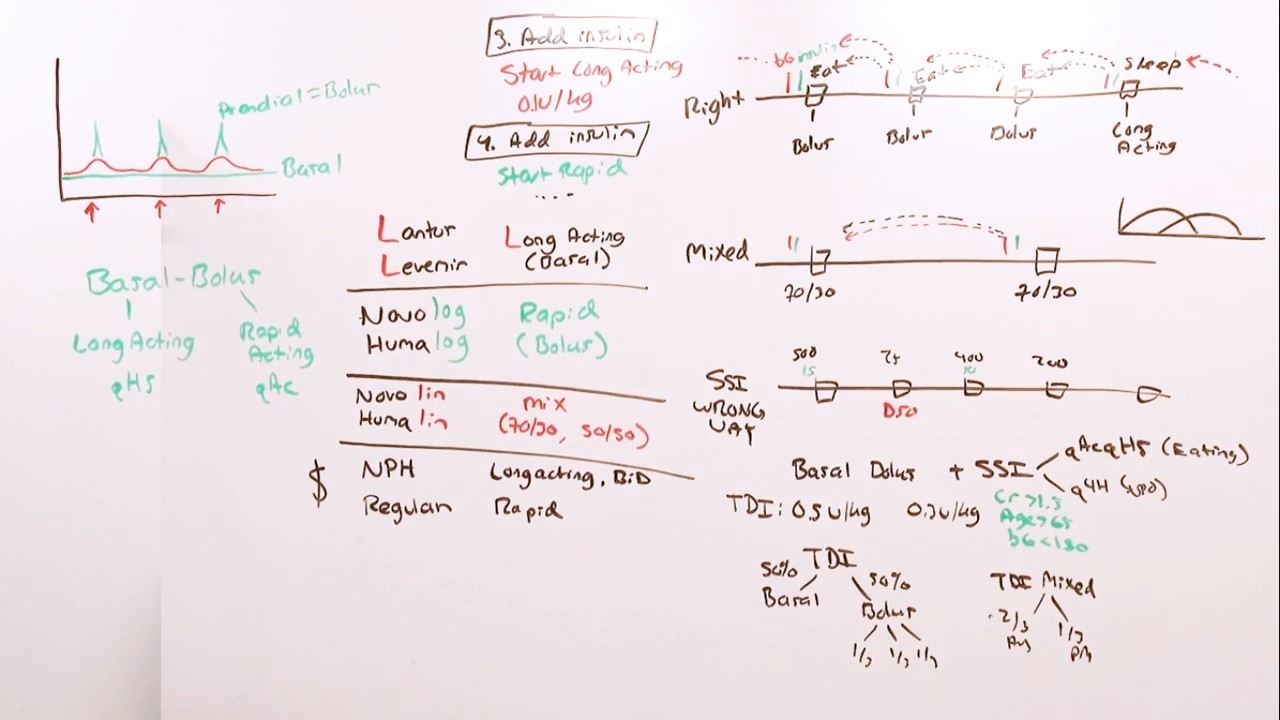 3. Add insulin
Start Long Acting
0.1u/kg
4. Add insulin
Start Rapid
....
Prandial = Bolus
Basal
Basal-Bolus
Long Acting
qHS
Rapid
Acting
qAc
Lantus Long Acting
Levemir (Basal)
Novolog Rapid
Humalog (Bolus)
Novolin mix
Humalin (70/30, 50/50)
$ NPH Longacting, BiD
Regular Rapid
bG insulin
Eat Eat Eat Sleep
Right
Bolus Bolus Bolus Long
Acting
Mixed
70/30 70/30
500 75 400 200
15 10
SSI
D50
WRONG
WAY
Basal Bolus + SSI qAcqHS (Eating)
q4H (NPO)
TDI: 0.5u/kg 0.3u/kg Cr >1.5
Age >65
bG <180
TDI
50% 50%
Basal Bolus
1/3 1/3 1/3
TDI Mixed
2/3 1/3
AM PM